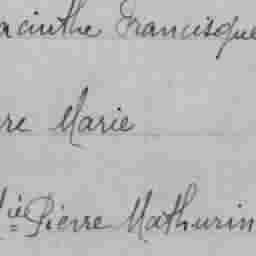 acinthe Francisque
re Marie
ie Pierre Mathurin